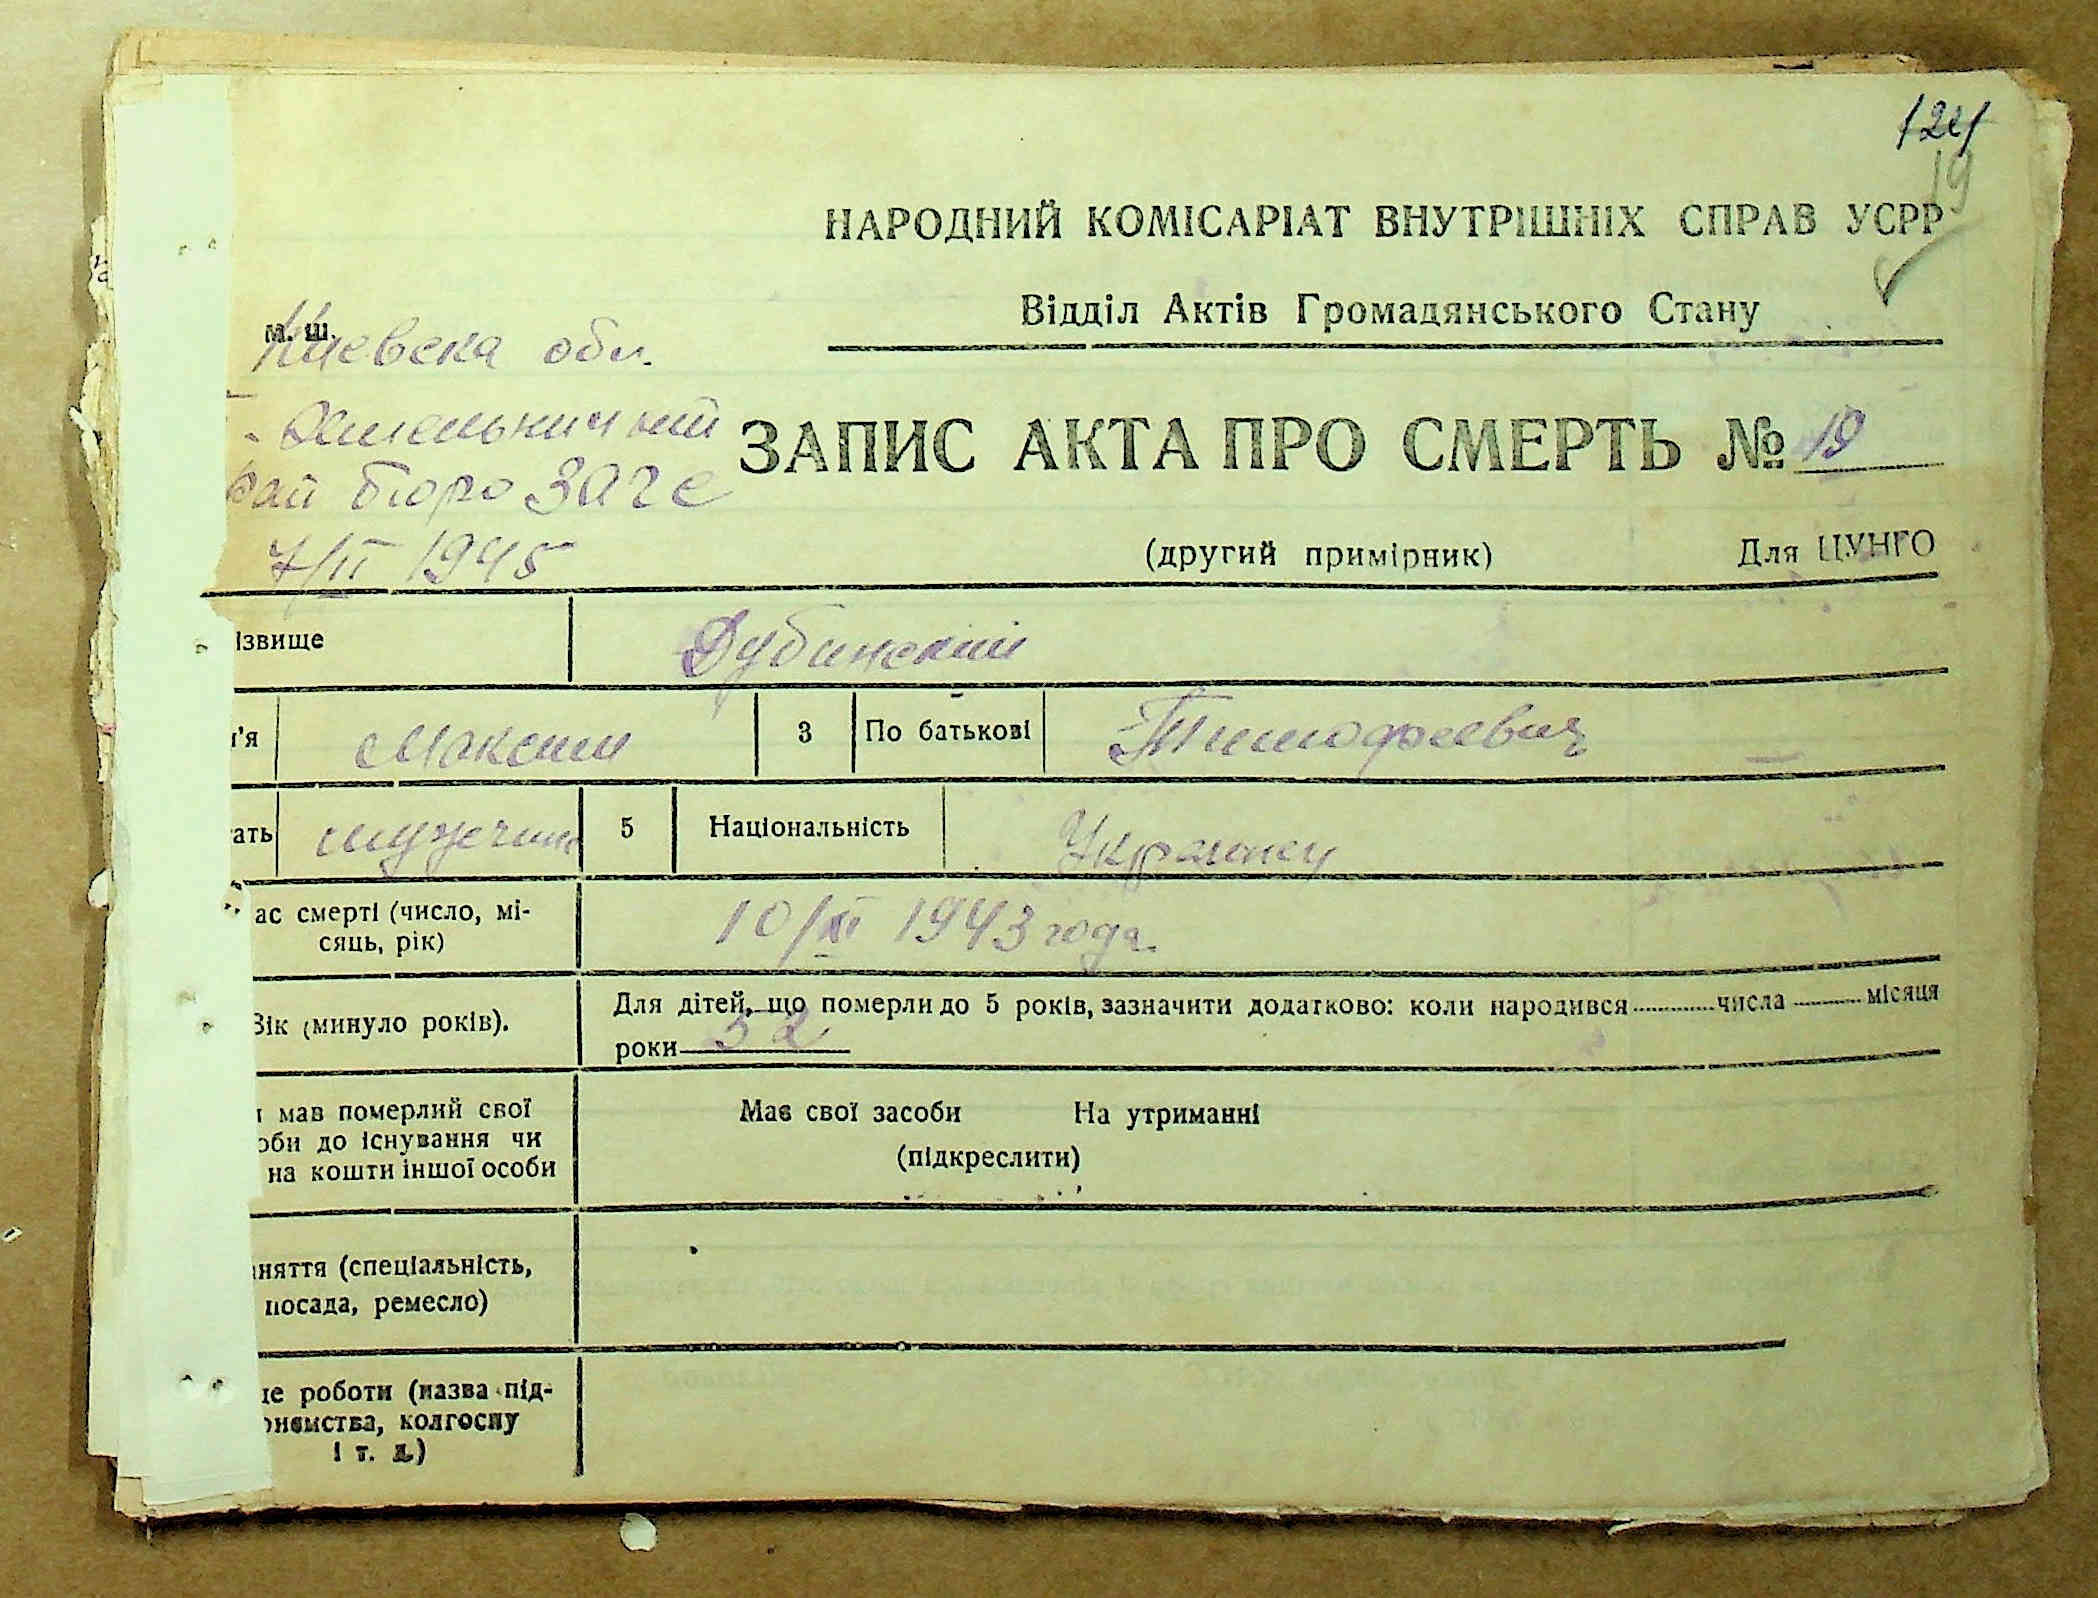 124
19
НАРОДНИЙ КОМІСАРІАТ ВНУТРІШНІХ СПРАВ УСРР
Відділ Актів Громадянського Стану
м. ш.
Киевска обл.
Хмельничький
рай бюро Загс
7/II 1945
ЗАПИС АКТА ПРО СМЕРТЬ № 19
(другий примірник) Для ЦУНГО
ізвище Дубинский
'я Максим 3 По батькові Тимофеевич
ать мужчина 5 Національність Украинец
ас смерті (число, мі-
сяць, рік)
10/XI 1943 года
Вік (минуло років).
Для дітей, що померли до 5 років, зазначити додатково: коли народився числа місяця
роки 52
мав померлий свої
оби до існування чи
на кошти іншої особи
Має свої засоби На утриманні
(підкреслити)
няття (спеціальність,
посада, ремесло)
це роботи (назва під-
риємства, колгоспу
і т. д.)